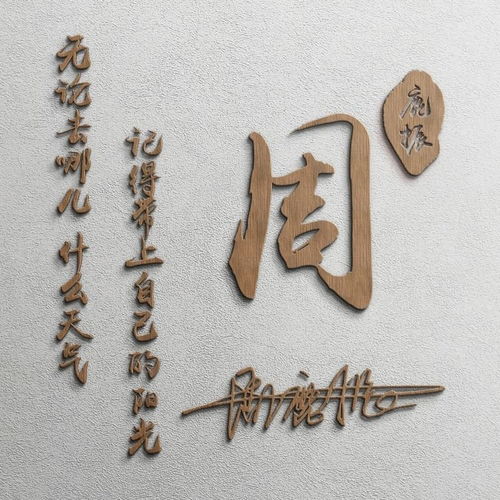 无论去哪儿 什么天气
记得带上自己的阳光
周
鹿振
周鹿振